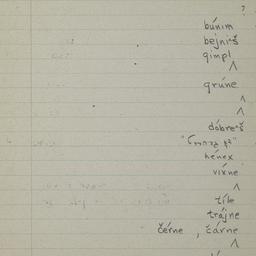 ?
búnim
bejniš
gimpl
^
grúne
^
^
dóbreš
hénex
víxne
^
tíle
trájne
čérne , čárne
^